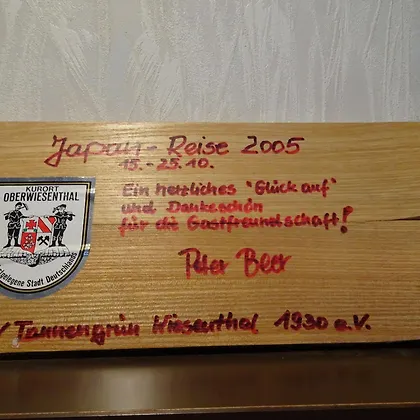 Japan-Reise 2005
15.-25.10.
Ein herzliches "Glück auf"
und Dankeschön
für die Gastfreundschaft!
Peter Beer
KURORT
OBERWIESENTHAL
stgelegene Stadt Deutschlands
/ Tannengrün Wiesenthal 1930 e.V.